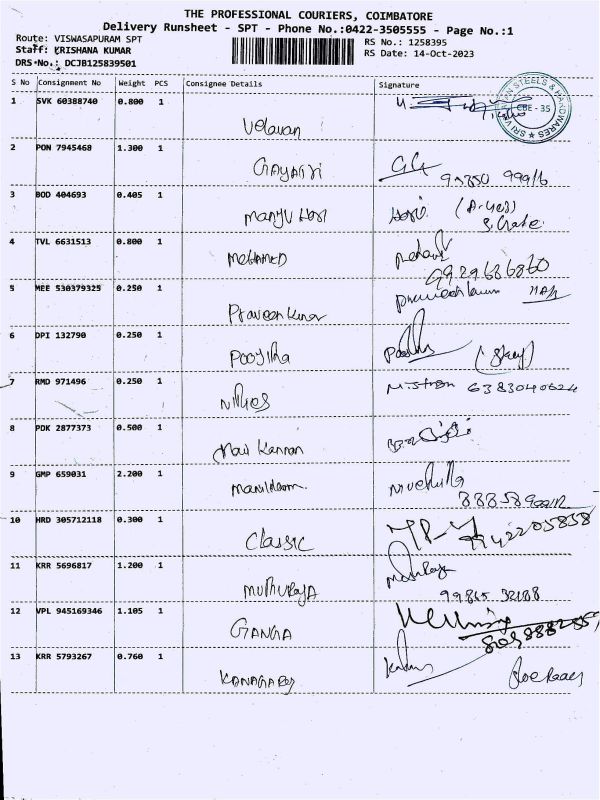 THE PROFESSIONAL COURIERS, COIMBATORE
Delivery Runsheet - SPT - Phone No.:0422-3505555 - Page No.:1
Route: VISWASAPURAM SPT
RS No.: 1258395
Staff: KRISHANA KUMAR
RS Date: 14-Oct-2023
DRS No.: DCJB125839501
S No Consignment No Weight PCS Consignee Details Signature
1 SVK 60388740 0.800 1
SRI VELAVAN STEELS & HARDWARES CBE - 35
Velavan
2 PON 7945468 1.300 1
GAYATRI
3 BOD 404693 0.405 1
Manju Hari Hari
4 TVL 6631513 0.800 1
MOHAMED
9929686860
5 MEE 530379325 0.250 1
Praveen Kumar
6 DPI 132790 0.250 1
POOJITHA
7 RMD 971496 0.250 1
6383040624
8 PDK 2877373 0.500 1
Kannan
9 GMP 659031 2.200 1
10 HRD 305712118 0.300 1
9942205858
Classic
11 KRR 5696817 1.200 1
MUTHURAJA 99865 32188
12 VPL 945169346 1.105 1
GANGA
13 KRR 5793267 0.760 1
KANAGARAJ